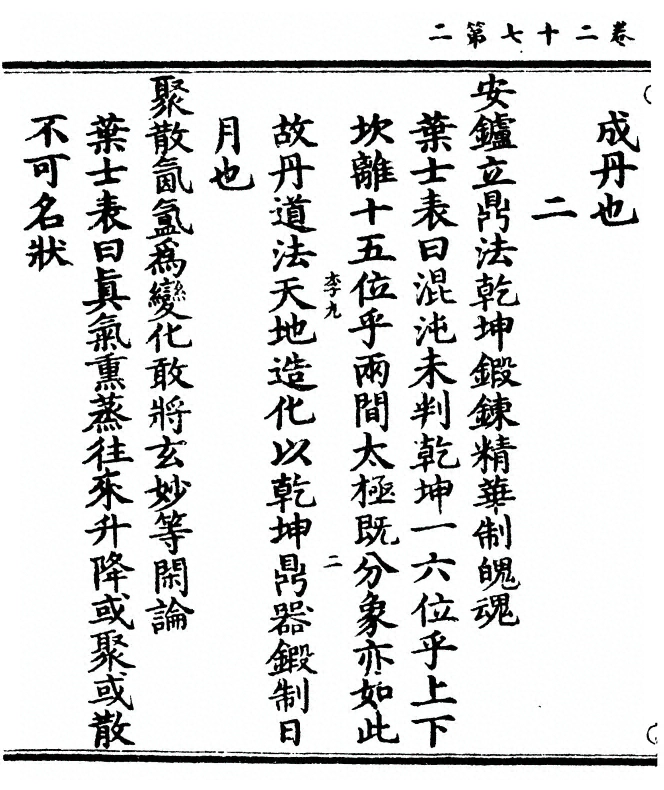 卷二十七第二
成丹也
二
安鑪立鼎法乾坤鍛鍊精華制魄魂
葉士表曰混沌未判乾坤一六位乎上下
坎離十五位乎兩間太極既分象亦如此
故丹道法天地造化以乾坤鼎器鍛制日
月也
聚散氤氳爲變化敢將玄妙等閑論
葉士表曰眞氣熏蒸往來升降或聚或散
不可名狀
李九
二